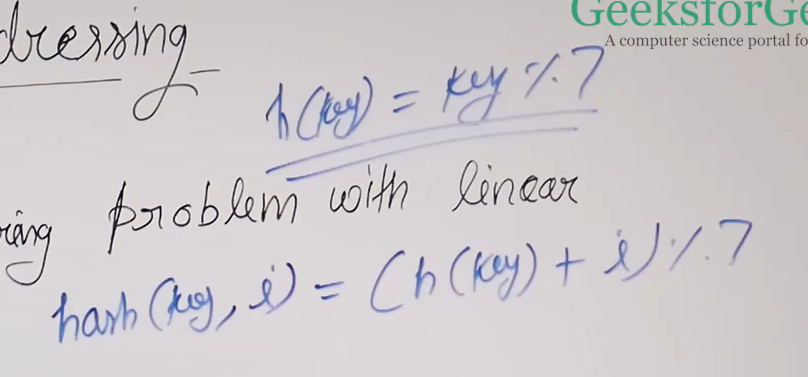 GeeksforGe
A computer science portal fo
dressing
h(key) = key % 7
ring problem with linear
hash(key, i) = (h(key) + i) % 7